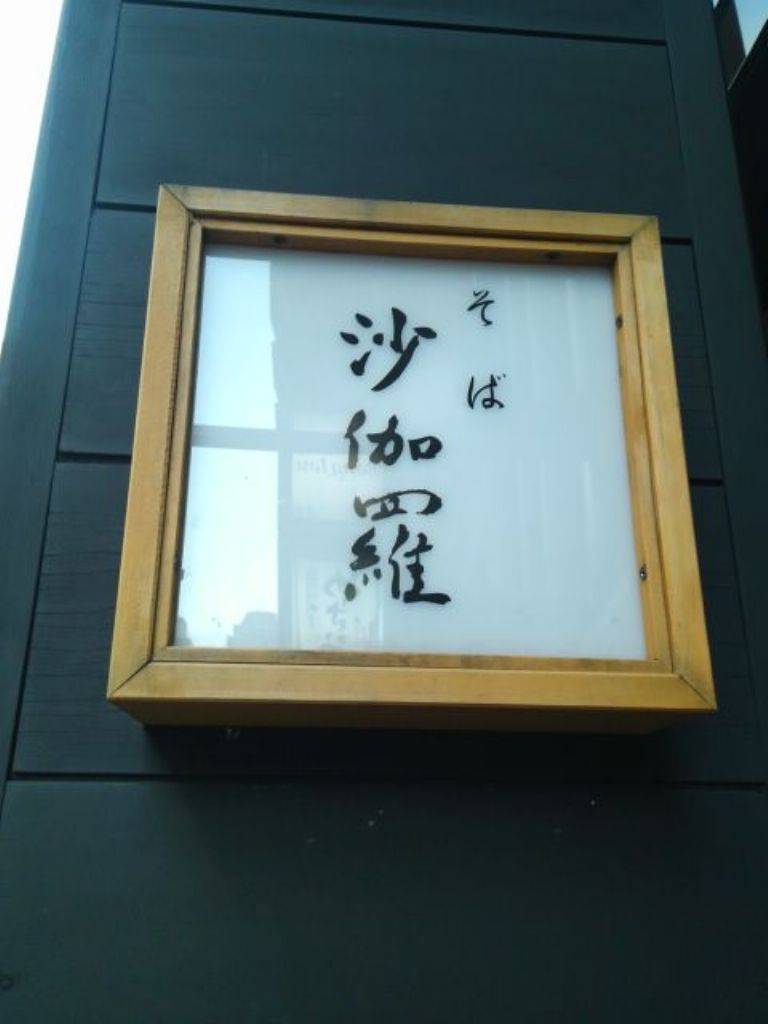 そば
沙伽羅